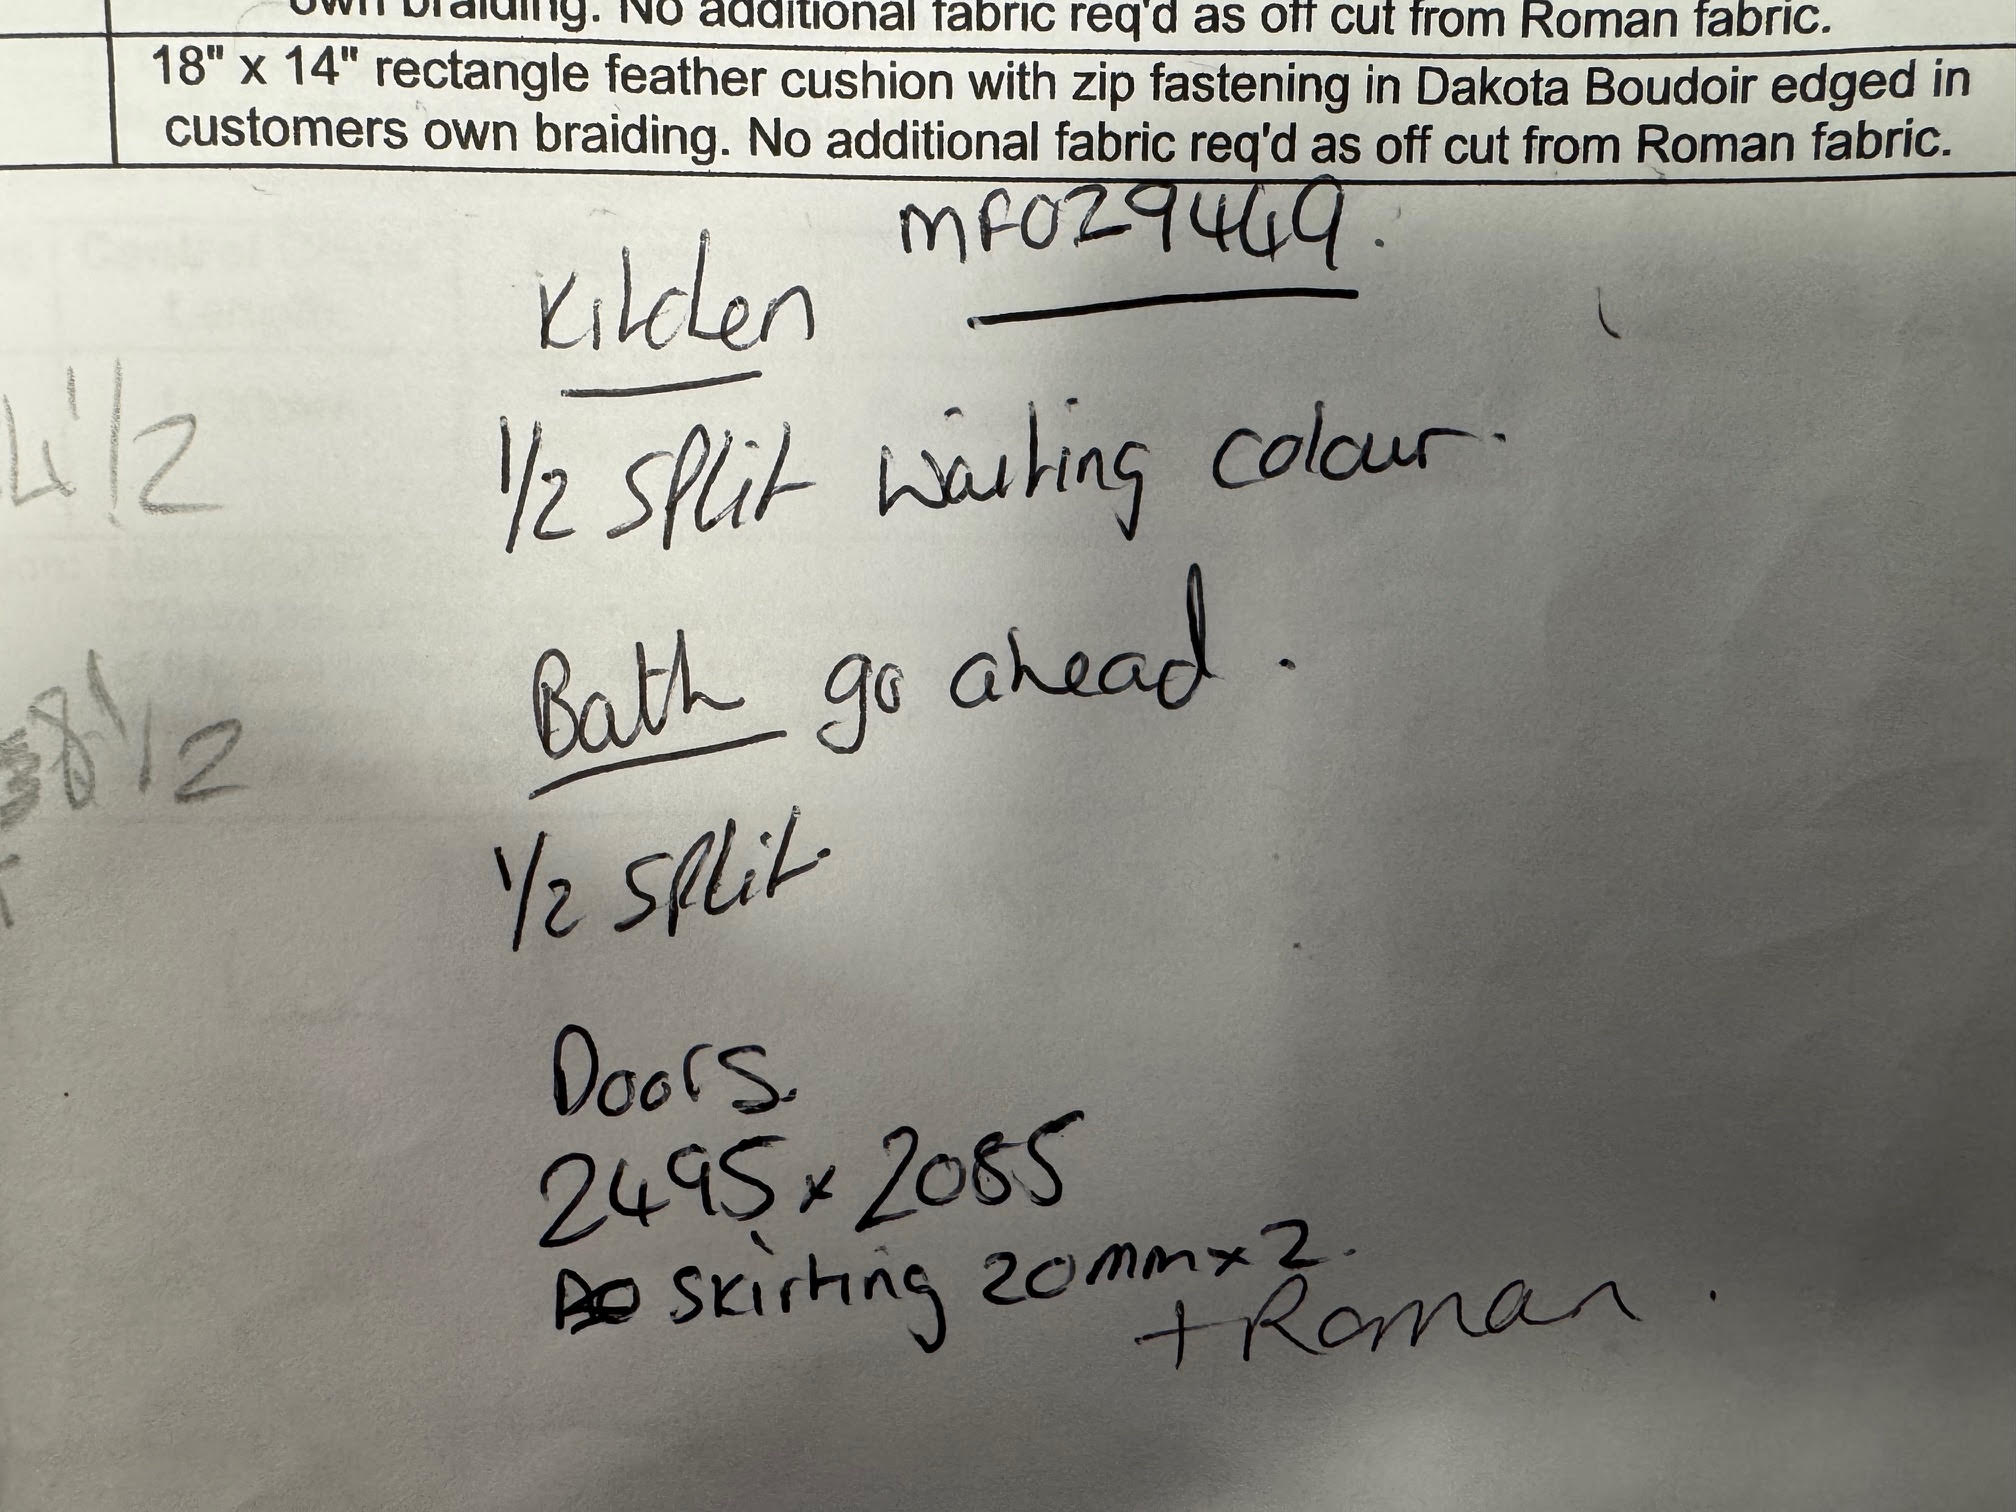 own braiding. No additional fabric req'd as off cut from Roman fabric.
18" x 14" rectangle feather cushion with zip fastening in Dakota Boudoir edged in
customers own braiding. No additional fabric req'd as off cut from Roman fabric.
MF029449.
Kitchen
1/2 split waiting colour.
4 1/2
Bath go ahead.
8 1/2
1/2 split.
Doors.
2495 x 2085
skirting 20mm x 2.
+ Roman.